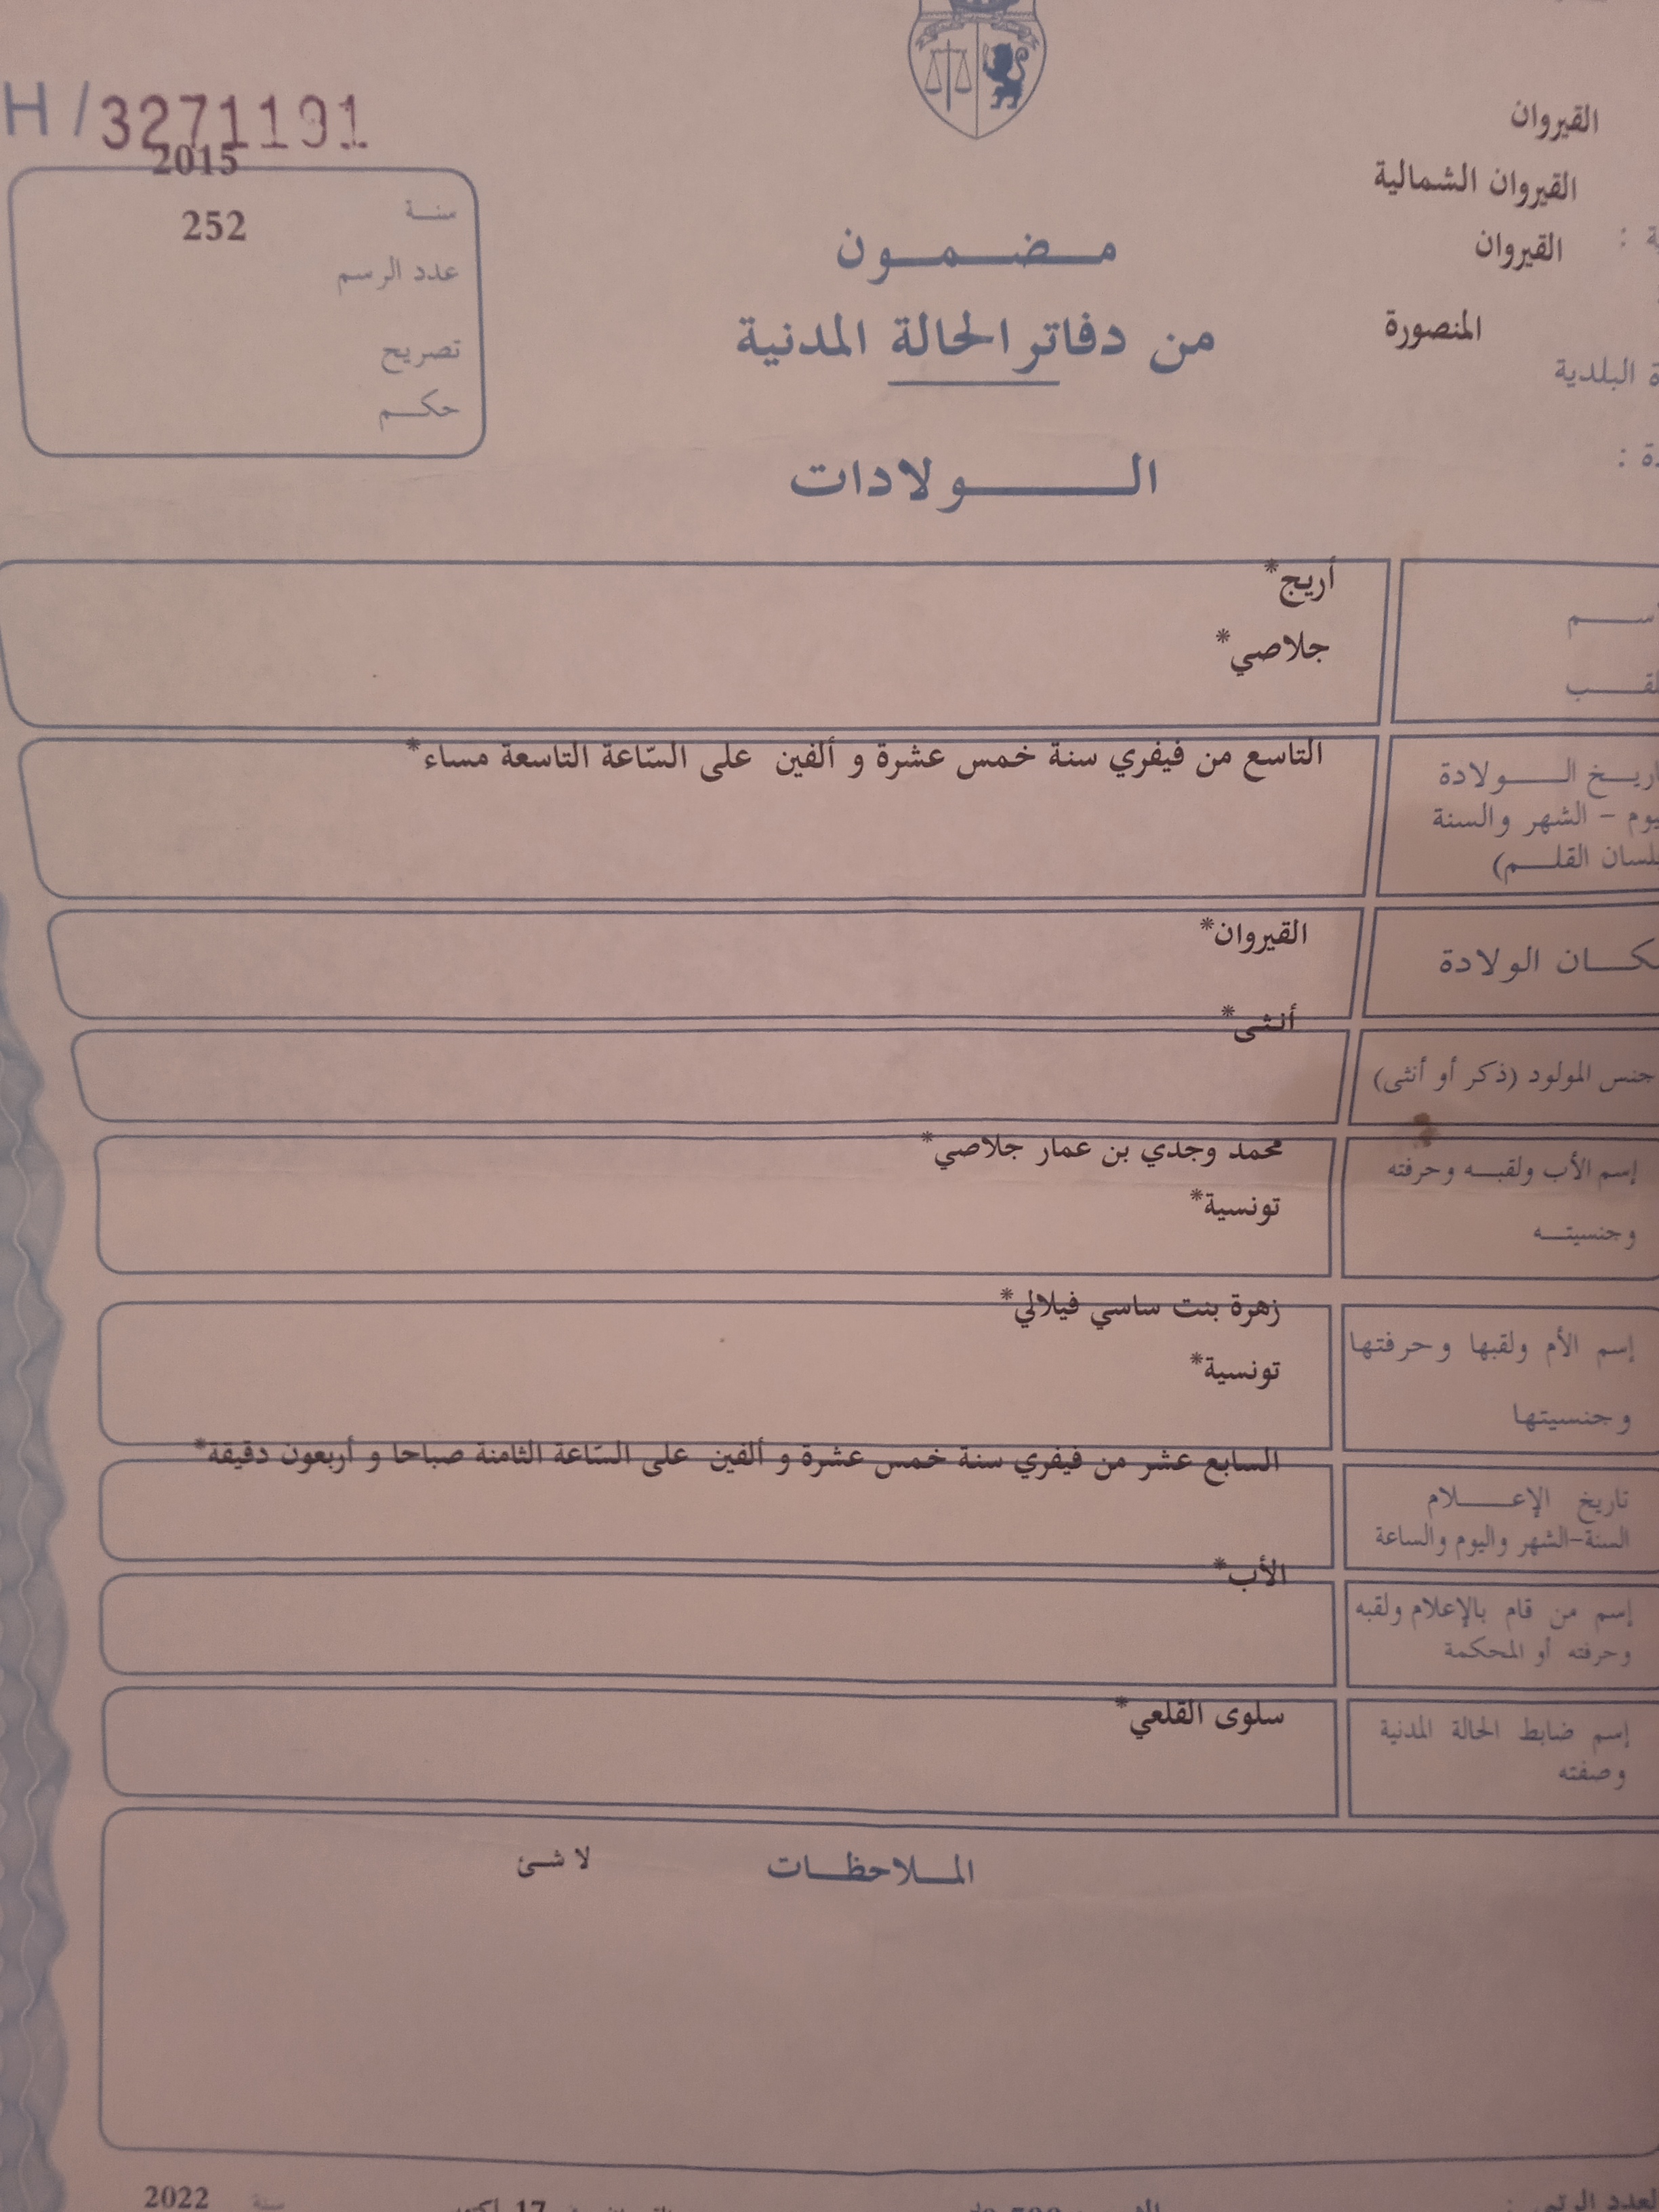 H/3271191
2015
سنة
252
عدد الرسم
تصريح
حكم
القيروان
القيروان الشمالية
القيروان
المنصورة
البلدية
مضمون
من دفاتر الحالة المدنية
الولادات
أريج*
جلاصي*
التاسع من فيفري سنة خمس عشرة و ألفين على السّاعة التاسعة مساء*
الولادة
الشهر والسنة
القلم)
القيروان*
الولادة
أنثى*
جنس المولود (ذكر أو أنثى)
محمد وجدي بن عمار جلاصي*
إسم الأب ولقبه وحرفته
تونسية*
وجنسيته
زهرة بنت ساسي فيلالي*
إسم الأم ولقبها وحرفتها
تونسية*
وجنسيتها
السابع عشر من فيفري سنة خمس عشرة و ألفين على السّاعة الثامنة صباحا و أربعون دقيقة*
تاريخ الإعلام
السنة-الشهر واليوم والساعة
الأب*
إسم من قام بالإعلام ولقبه
وحرفته أو المحكمة
سلوى القلعي*
إسم ضابط الحالة المدنية
وصفته
الملاحظات لا شئ
سنة 2022